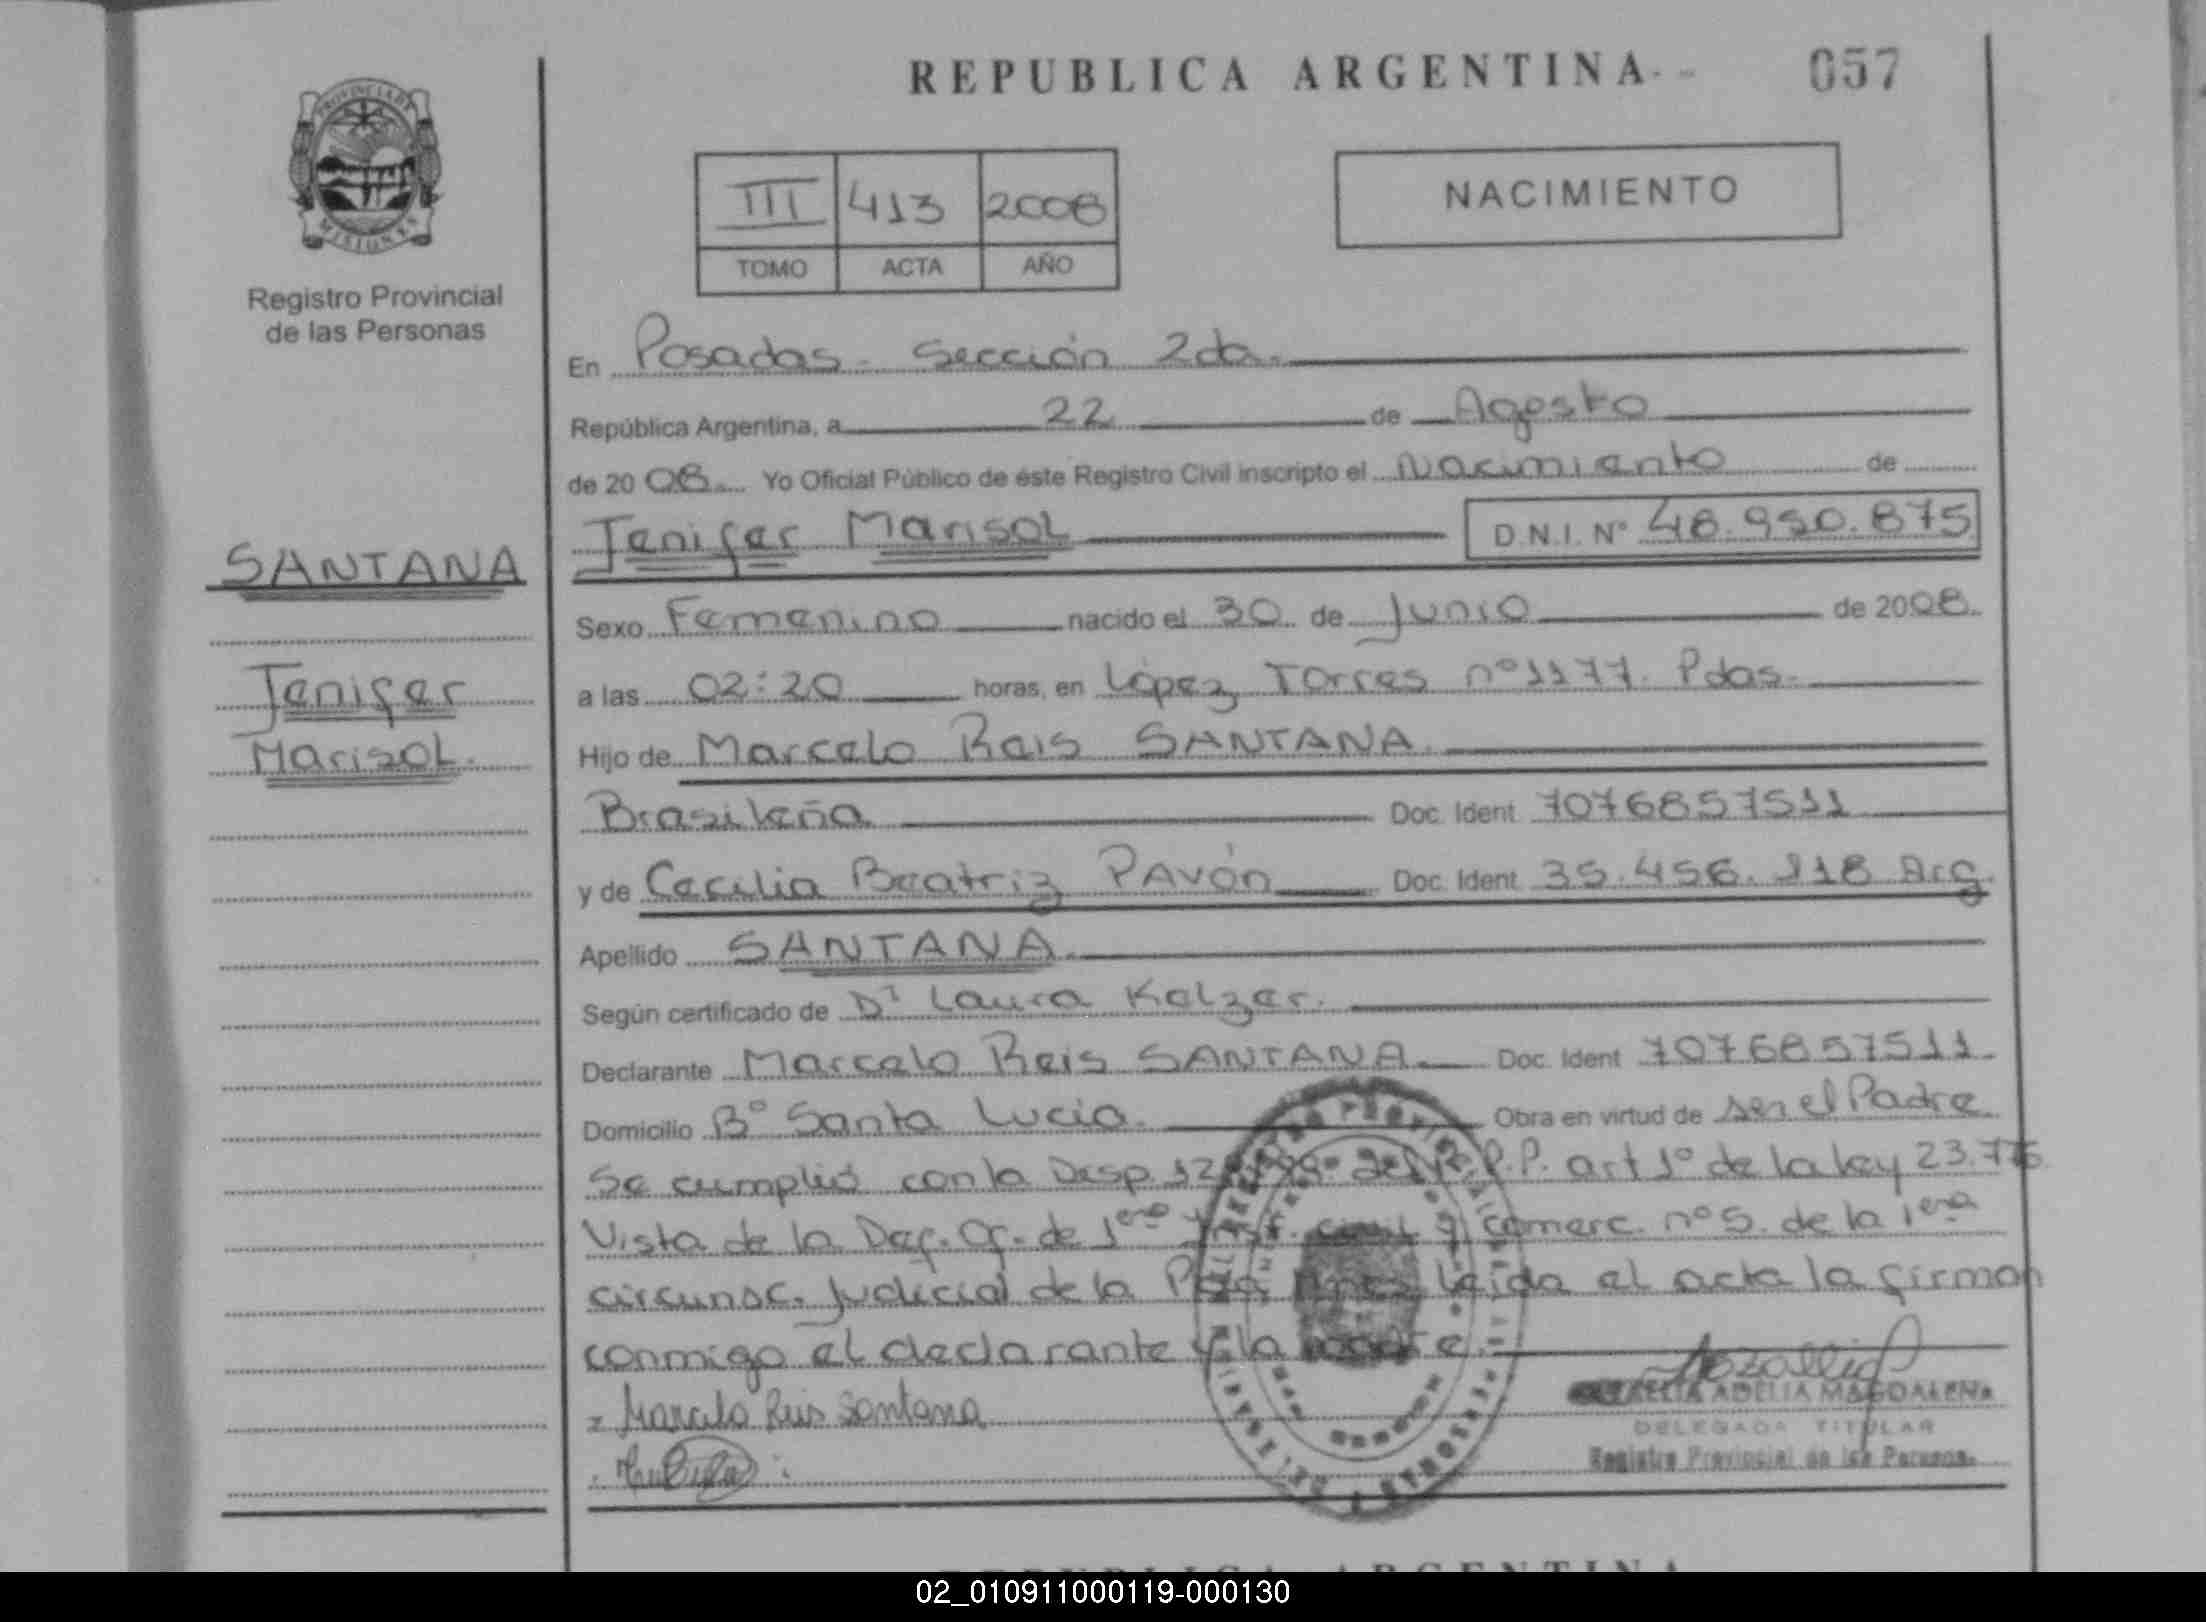 REPUBLICA ARGENTINA
057
PROVINCIA DE
MISIONES
Registro Provincial
de las Personas
III 413 2008
TOMO ACTA AÑO
NACIMIENTO
En Posadas - Sección 2da.
República Argentina, a 22 de Agosto
de 2008. Yo Oficial Público de éste Registro Civil inscripto el Nacimiento de
SANTANA
Jenifer
Marisol.
Jenifer Marisol D.N.I. Nº 48.950.875
Sexo Femenino nacido el 30 de Junio de 2008.
a las 02:20 horas, en López Torres nº 1177. Pdas.
Hijo de Marcelo Reis SANTANA.
Brasileña. Doc. Ident 7076857511
y de Cecilia Beatriz PAVón Doc. Ident 35.456.118 Arg.
Apellido SANTANA.
Según certificado de Dr Laura Kelzer.
Declarante Marcelo Reis SANTANA. Doc. Ident 7076857511
Domicilio Bº Santa Lucia. Obra en virtud de ser el Padre
Se cumplió con la Desp. R.P.P. art 1º de la ley 23.776
Vista de la Def. Of. de 1era Inst. civil y comerc. nº 5. de la 1era
circunsc. Judicial de la leida el acta la firman
conmigo el declarante y la madre.
- Marcelo Reis Santana
ADELIA MAGDALENA
DELEGADA TITULAR
Registro Provincial de las Personas
REPUBLICA ARGENTINA
02_010911000119-000130